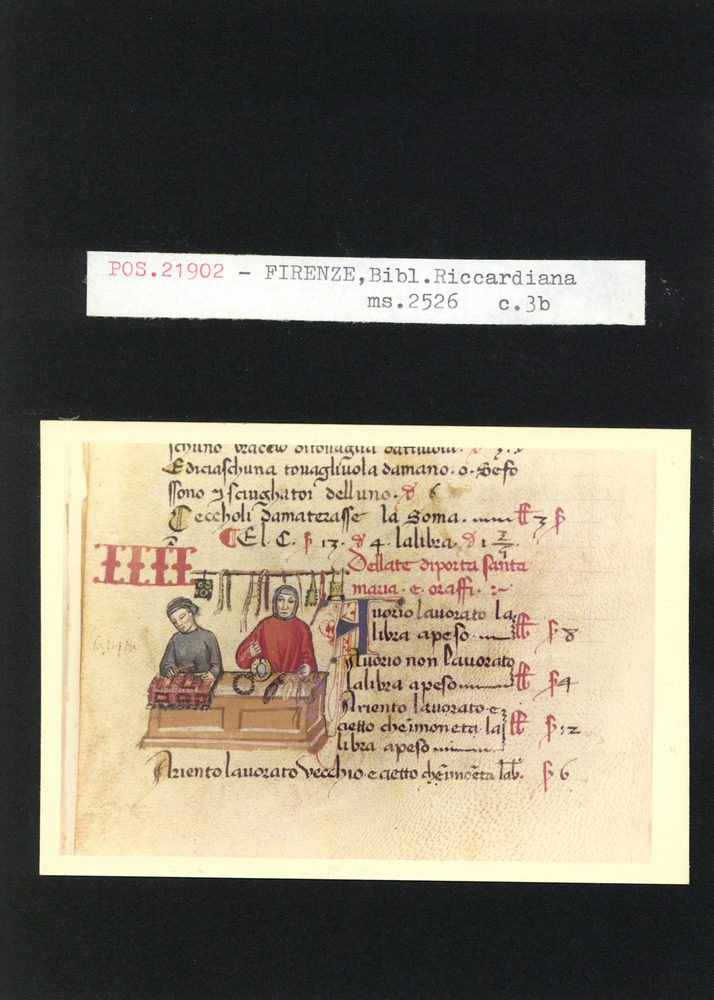 POS.21902 - FIRENZE,Bibl.Riccardiana
ms.2526 c.3b
Ediciaschuna tovagliuola damano. o. Sefo
ssono 7 sciughatoi delluno. d 6
Ceccholi damaterasse la Soma.
El. C. 13. d 4. lalibra. d 1
IIII
Dellate diporta santa
maria. e. oraffi.
Avorio lavorato la
libra apeso 8
Avorio non lavorato
lalibra apeso 4
Ariento lavorato e
aetto che imoneta la
libra apeso 12
Ariento lavorato vecchio e aetto
6